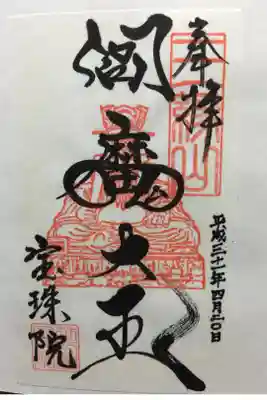 奉拝
閻魔大王
平成三十一年四月二〇日
宝珠院